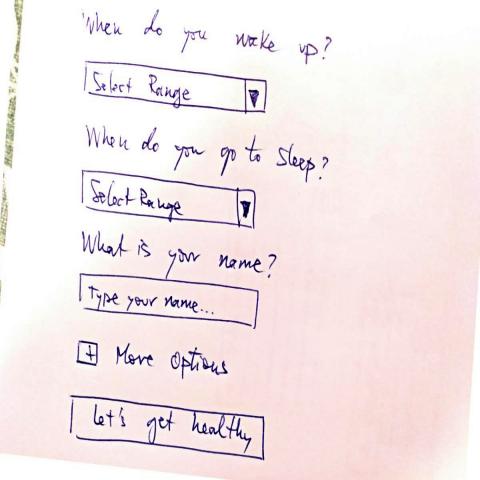 When do you wake up?
Select Range
When do you go to sleep?
Select Range
What is your name?
Type your name...
+ More Options
Let's get healthy